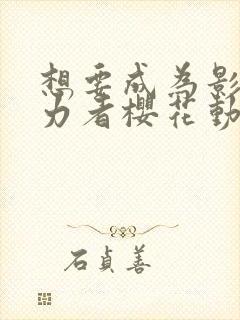 想要成為影
力者櫻花動
石貞善